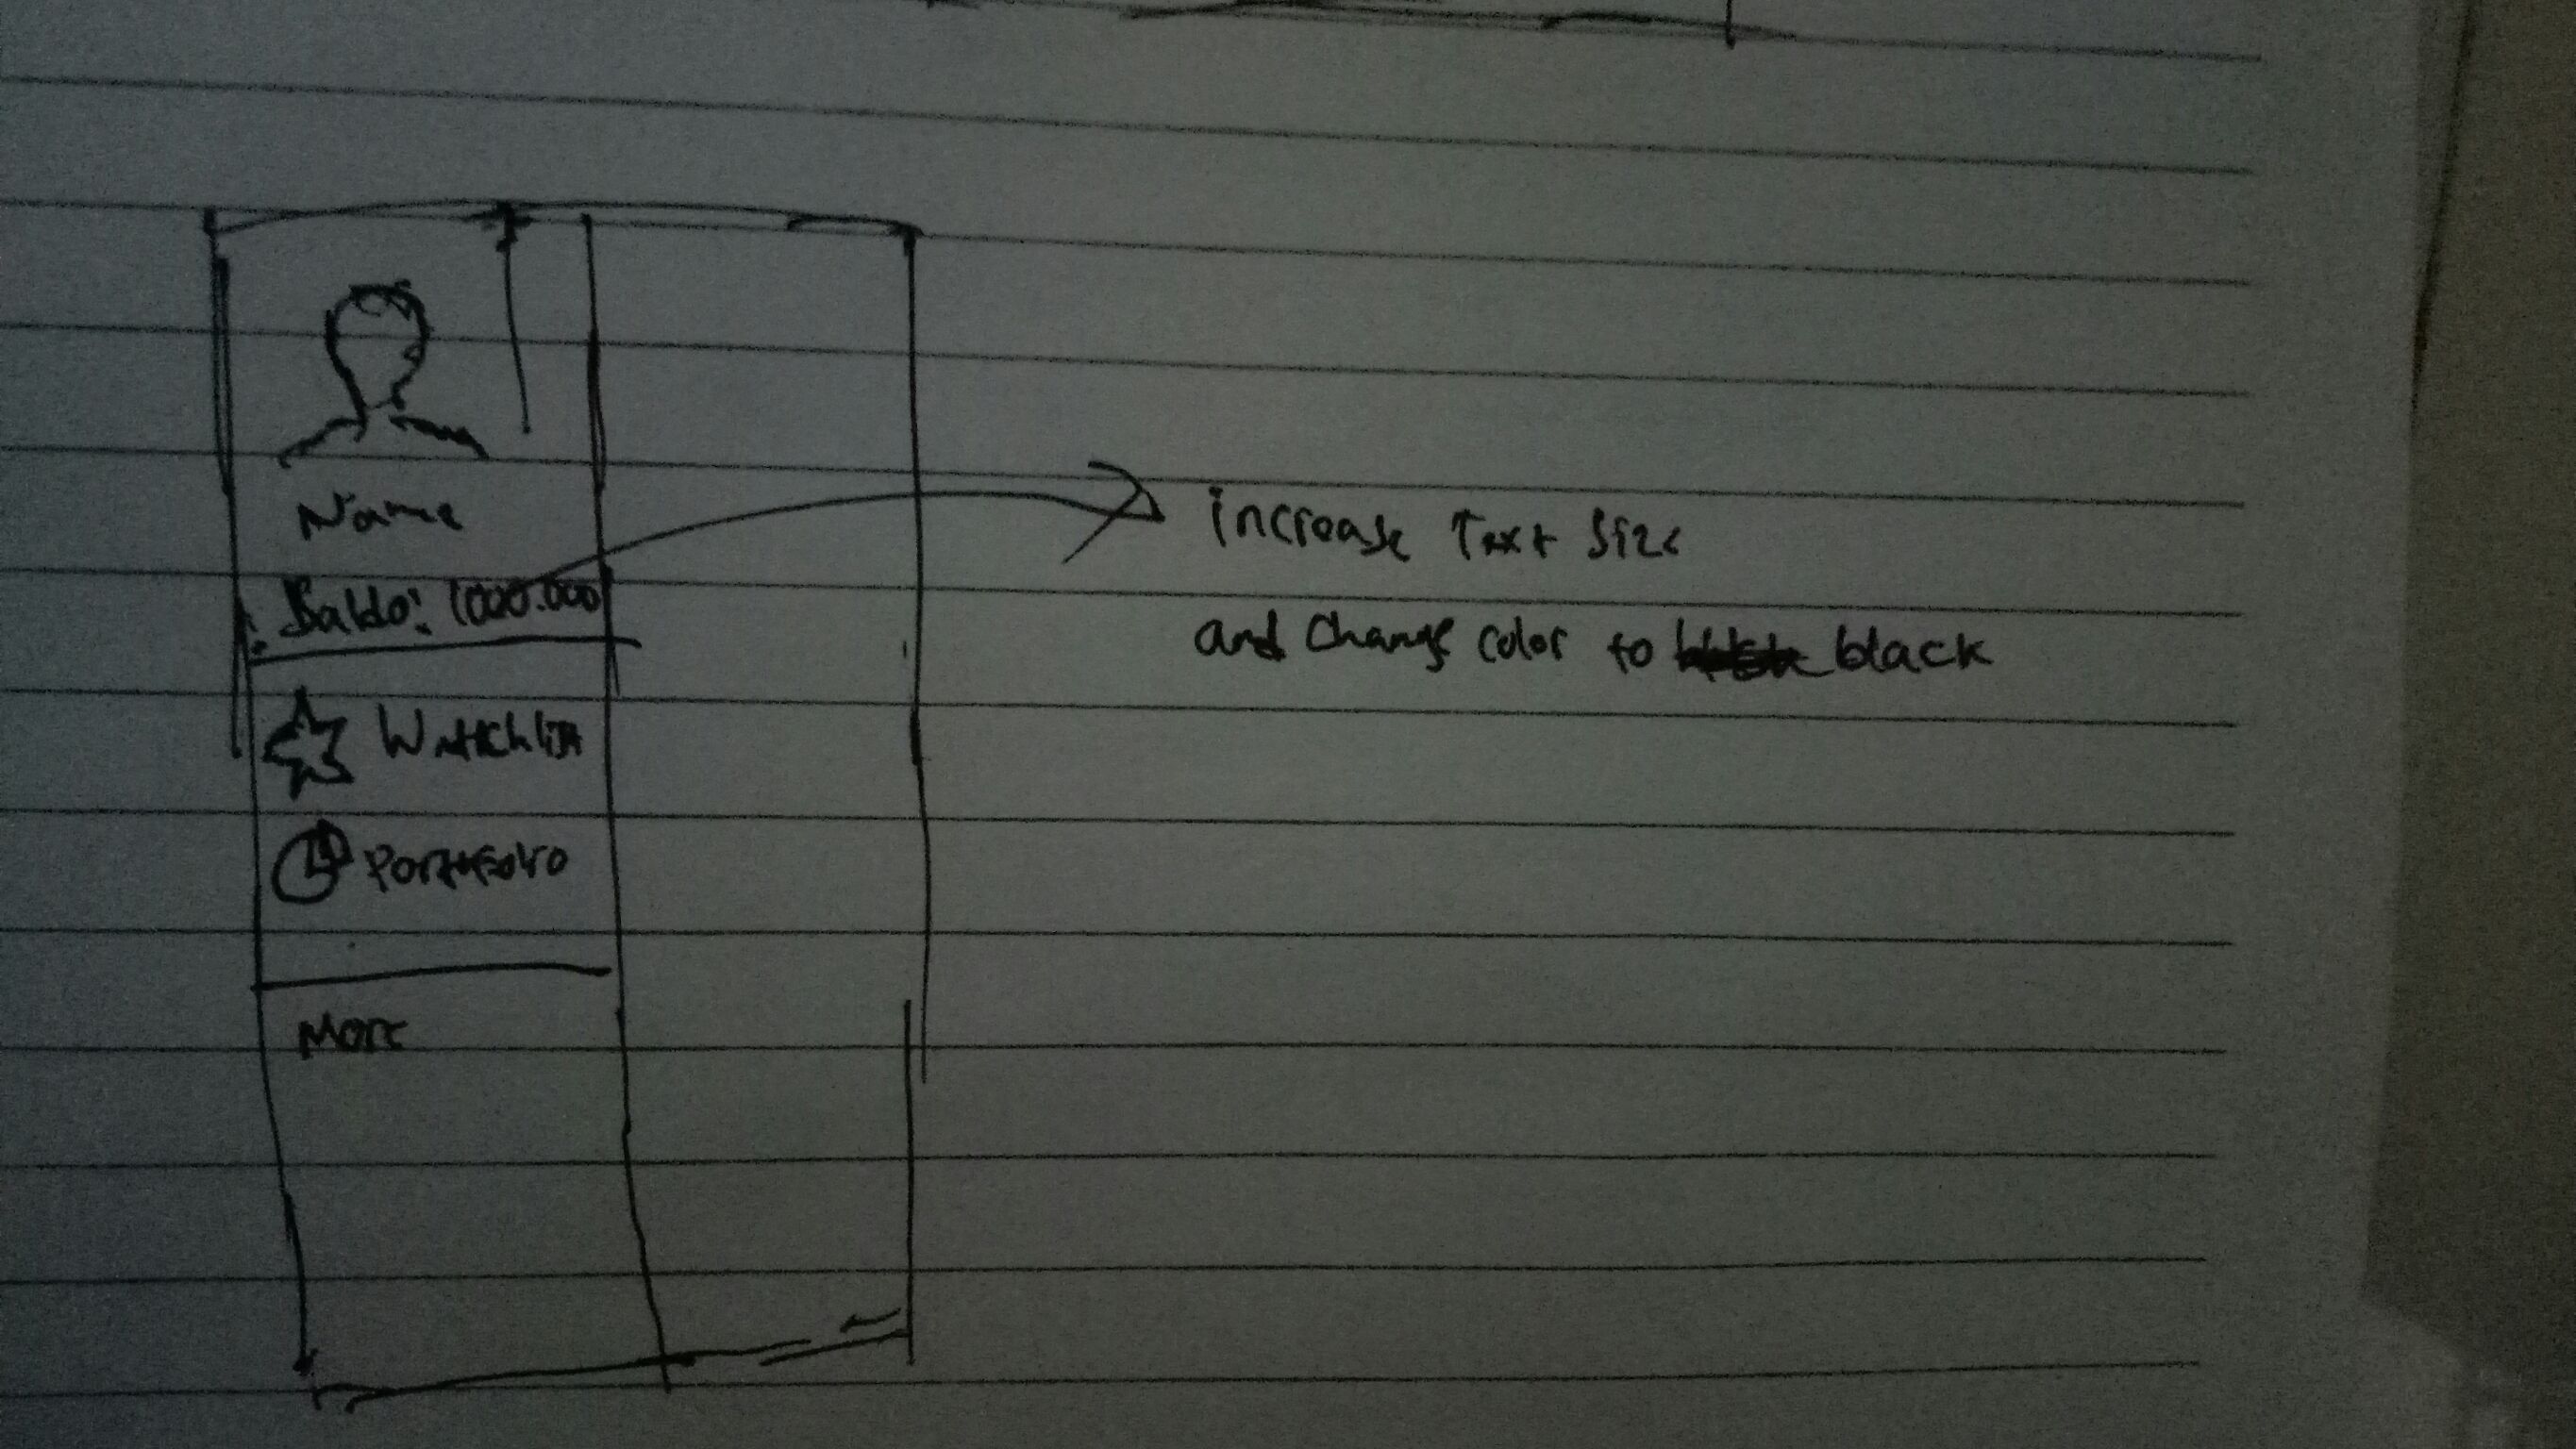 Name
Saldo: 1000.000
Watchlist
Portfolio
More
increase Text Size
and Change color to black